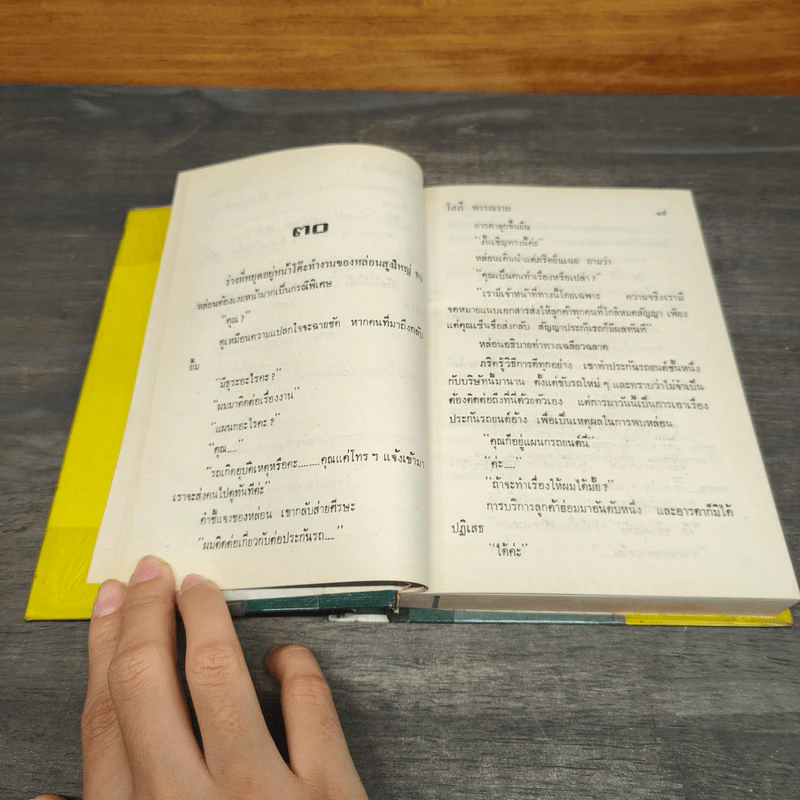 ๓๐
ร่างที่หยุดอยู่หน้าโต๊ะทำงานของหล่อนสูงใหญ่ จน
หล่อนต้องเงยหน้ามากเป็นกรณีพิเศษ
“คุณ ?”
ดูเหมือนความแปลกใจจะฉายชัด หากคนที่มาถึงกลับ
ยิ้ม
“มีธุระอะไรคะ ?”
“ผมมาติดต่อเรื่องงาน”
“แผนกอะไรคะ ?”
“คุณ....”
“รถเกิดอุบัติเหตุหรือคะ........คุณแค่โทร ๆ แจ้งเข้ามา
เราจะส่งคนไปดูทันทีค่ะ”
คำชี้แจงของหล่อน เขากลับส่ายศีรษะ
“ผมติดต่อเกี่ยวกับต่อประกันรถ....”
โสภี พรรณราย
อารดาลุกขึ้นยืน
“งั้นเชิญทางนี้ค่ะ”
หล่อนเดินนำ แต่ภริตยืนเฉย ถามว่า
“คุณเป็นคนทำเรื่องหรือเปล่า ?”
“เรามีเจ้าหน้าที่ทางนี้โดยเฉพาะ ความจริงเรามี
จดหมายแนบเอกสารส่งให้ลูกค้าทุกคนที่ใกล้หมดสัญญา เพียง
แต่คุณเซ็นชื่อส่งกลับ สัญญาประกันรถก็มีผลทันที”
หล่อนอธิบายท่าทางเฉลียวฉลาด
ภริตรู้วิธีการดีทุกอย่าง เขาทำประกันรถยนต์ชั้นหนึ่ง
กับบริษัทนี้มานาน ตั้งแต่ขับรถใหม่ ๆ และทราบว่าไม่จำเป็น
ต้องติดต่อถึงที่นี่ด้วยตัวเอง แต่การมาวันนี้เป็นการเอาเรื่อง
ประกันรถยนต์อ้าง เพื่อเป็นเหตุผลในการพบหล่อน
“คุณก็อยู่แผนกรถยนต์นี่”
“ค่ะ....”
“ถ้าจะทำเรื่องให้ผมได้มั้ย ?”
การบริการลูกค้าย่อมมาอันดับหนึ่ง และอารดาก็มิได้
ปฏิเสธ
“ได้ค่ะ”